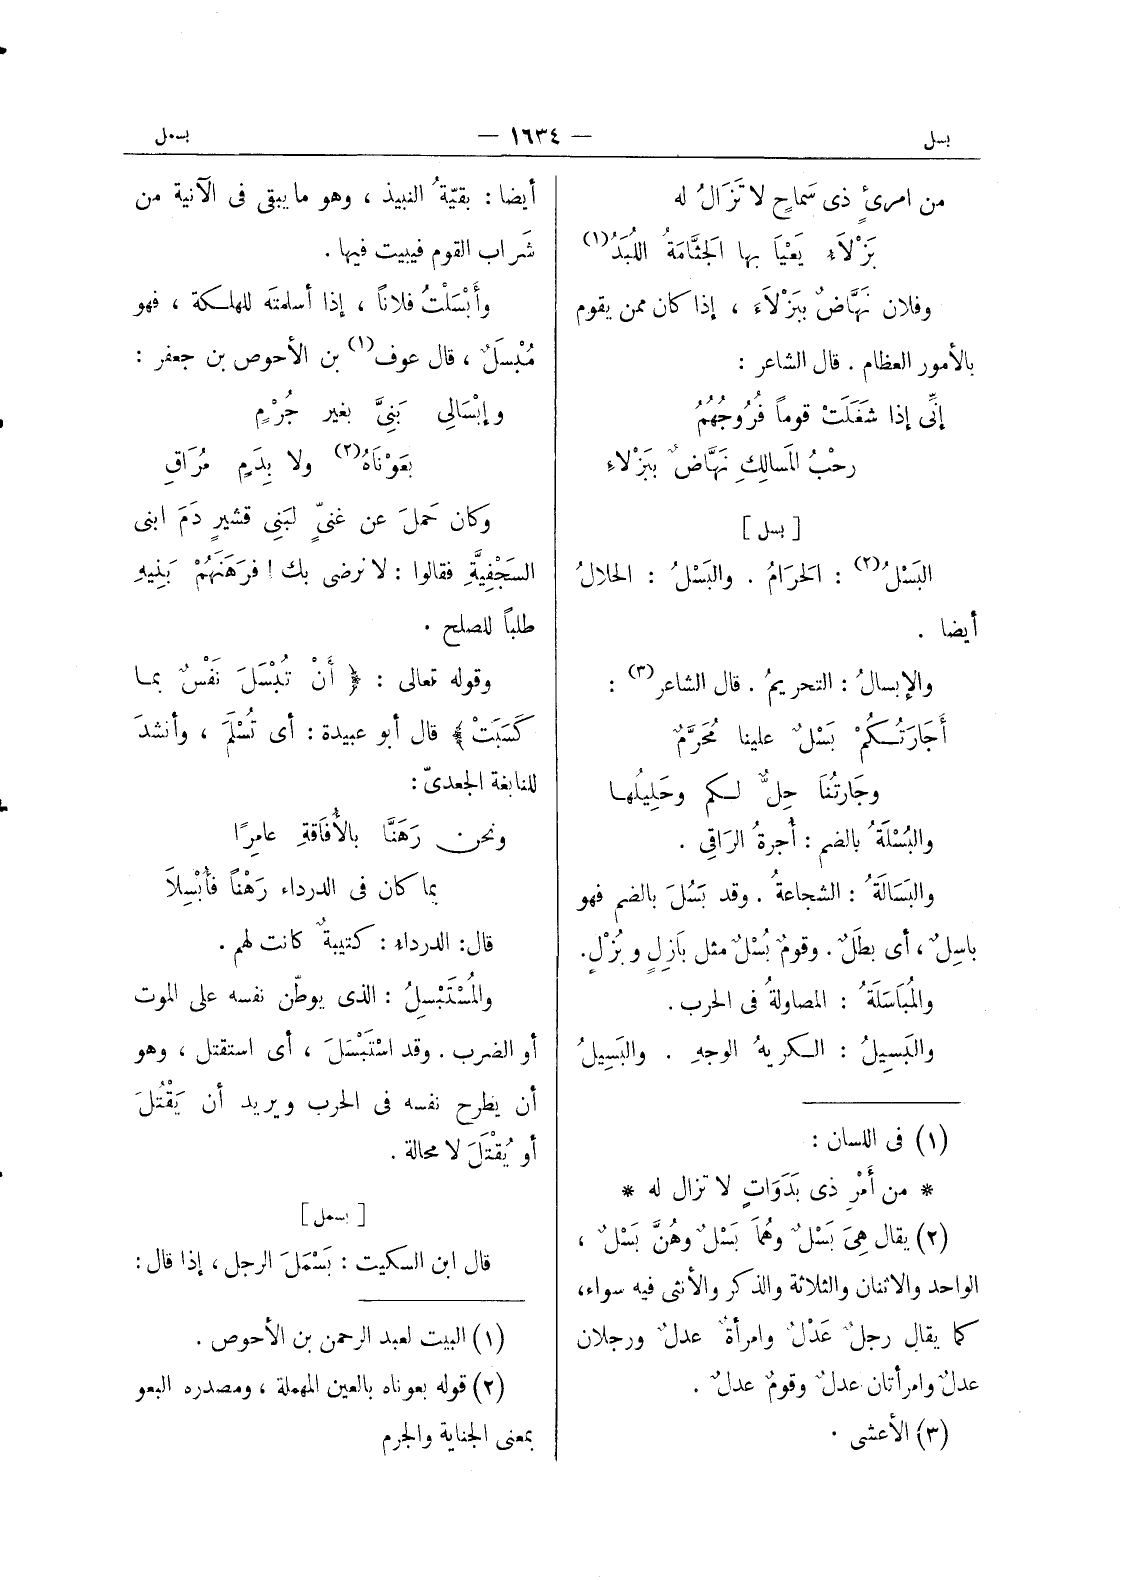 بسل
— ١٦٣٤ —
بسمل
من امرئٍ ذى سَماحٍ لا تَزَالُ له
بَزْلاَءِ يَعْيَا بها الجَثَّامَةُ اللُبَدُ(١)
وفلان نَهَّاضٌ بِبَزْلَاءَ ، إذا كان ممن يقوم
بالأمور العظام . قال الشاعر :
إنِّى إذا شَغَلَتْ قوماً فُرُوجُهُمُ
رحْبُ المَسالِكِ نَهَّاضٌ بِبَزْلاءِ
[ بسل ]
البَسْلُ(٢) : الحَرَامُ . والبَسْلُ : الحلالُ
أيضا .
والإبسالُ : التحريمُ . قال الشاعر(٣) :
أَجَارَتُكُمْ بَسْلٌ علينا مُحَرَّمٌ
وجَارتُنَا حِلٌّ لكم وحَلِيلُها
والبُسْلَةُ بالضم : أجرةُ الرَاقِى .
والبَسَالَةُ : الشجاعةُ . وقد بَسُلَ بالضم فهو
باسِلٌ ، أى بطَلٌ . وقومٌ بُسْلٌ مثل بَازِلٍ و بُزْلٍ.
والمُبَاسَلَةُ : المصاولةُ فى الحرب .
والبَسِيلُ : الكريهُ الوجهِ . والبَسِيلُ
(١) فى اللسان :
* من أَمْرِ ذى بَدَوَاتٍ لا تزال له *
(٢) يقال هِىَ بَسْلٌ وهُمَا بَسْلٌ وهُنَّ بَسْلٌ ،
الواحد والاثنان والثلاثة والذكر والأنثى فيه سواء،
كما يقال رجلٌ عَدْلٌ وامرأةٌ عدلٌ ورجلان
عدلٌ وامرأتان عدلٌ وقومٌ عدلٌ .
(٣) الأعشى .
أيضا : بقيّةُ النبيذ ، وهو ما يبقى فى الآنية من
شَراب القوم فيبيت فيها .
وأَبْسَلْتُ فلاناً ، إذا أسلمتَه للهلكة ، فهو
مُبْسَلٌ ، قال عوف(١) بن الأحوص بن جعفر :
وإبْسَالِى بَنِىَّ بغير جُرْمٍ
بَعَوْنَاهُ(٢) ولا بِدَمٍ مُرَاقِ
وكان حَملَ عن غنىٍّ لبَنِى قشيرٍ دَمَ ابنى
السَجْفِيَّةِ فقالوا : لا نرضى بك ! فرَهَنَهُمْ بَنِيهِ
طلباً للصلح .
وقوله تعالى : ﴿ أَنْ تُبْسَلَ نَفْسٌ بما
كَسَبَتْ ﴾ قال أبو عبيدة : أى تُسْلَمَ ، وأنشدَ
للنابغة الجعدىّ :
ونحن رَهَنَّا بالأُفَاقَةِ عامِرًا
بما كان فى الدرداء رَهْناً فأُبْسِلاَ
قال: الدرداء : كتيبةٌ كانت لهم .
والمُسْتَبْسِلُ : الذى يوطّن نفسه على الموت
أو الضرب . وقد اسْتَبْسَلَ ، أى استقتل ، وهو
أن يطرح نفسه فى الحرب ويريد أن يَقْتُلَ
أو يُقْتَلَ لا محالة .
[ بسمل ]
قال ابن السكيت : بَسْمَلَ الرجل ، إذا قال :
(١) البيت لعبد الرحمن بن الأحوص .
(٢) قوله بعوناه بالعين المهملة ، ومصدره البعو
بمعنى الجناية والجرم